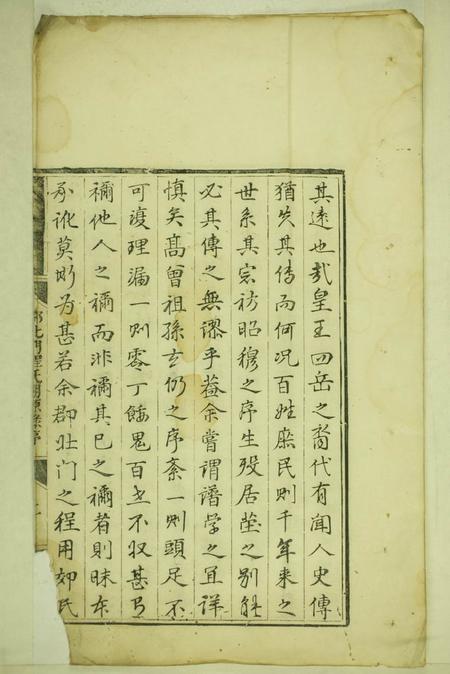 其遠也哉皇王四岳之裔代有聞人史傳
猶失其傳而何況百姓庶民則千年來之
世系其宗祊昭穆之序生歿居塋之別能
必其傳之無謬乎葢余嘗謂譜学之宜詳
慎矣髙曾祖孫玄仍之序紊一則頭足不
可復理漏一則零丁餒鬼百世不収甚乃
禰他人之禰而非禰其已之禰者則昧本
承訛莫此为甚若余郡北门之程用郊氏
郡北門程氏溯源彙序